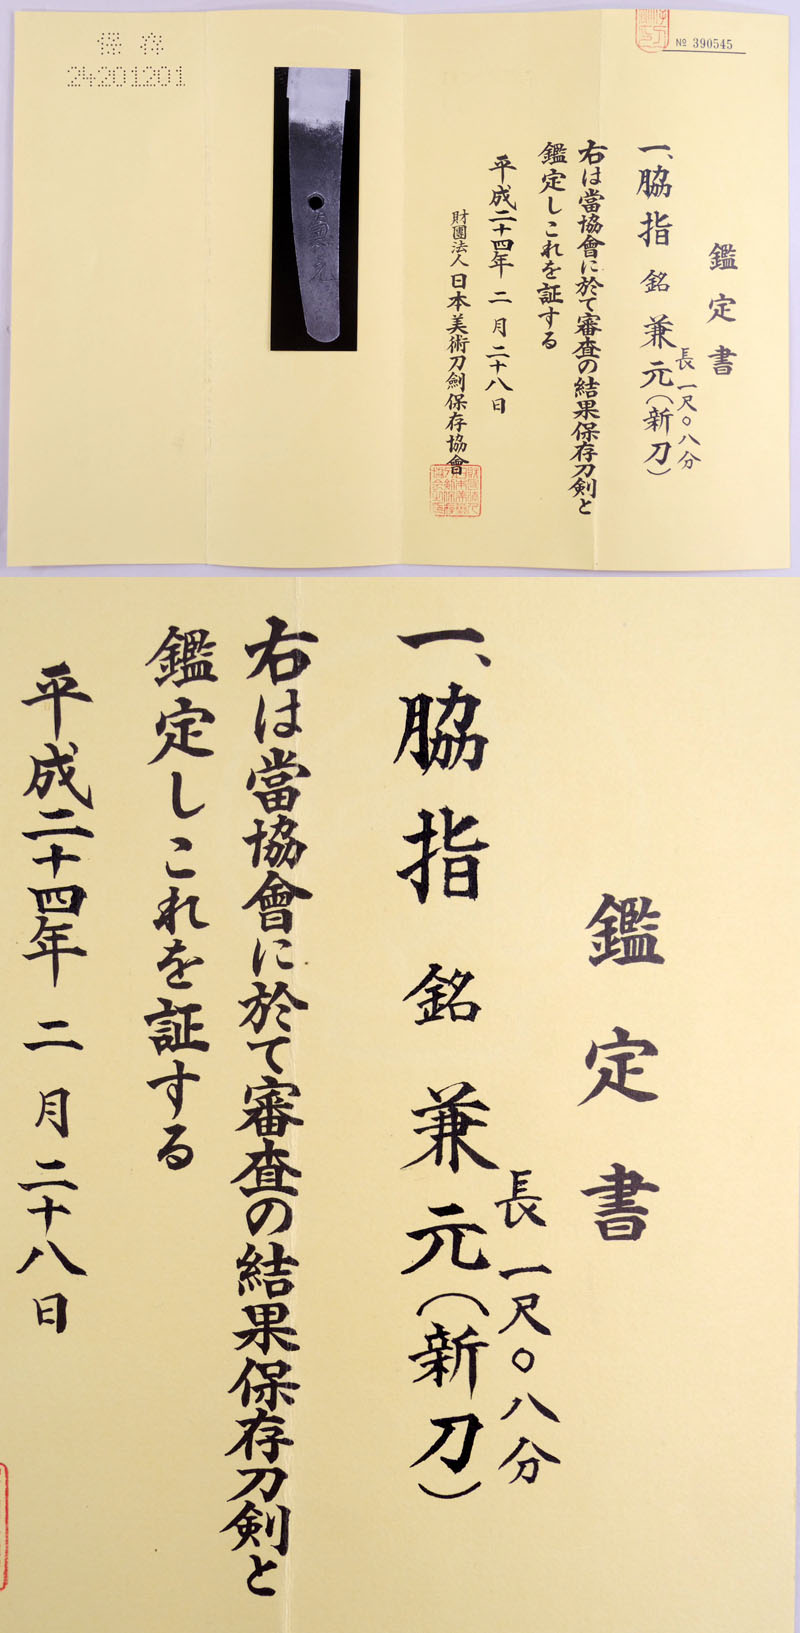 保存
24201201
№ 390545
鑑定書
一、脇指 銘 兼元(新刀)
長一尺〇八分
右は當協會に於て審査の結果保存刀剣と
鑑定しこれを証する
平成二十四年 二月二十八日
財團法人日本美術刀劍保存協會
兼元
鑑定書
一、脇指 銘 兼元(新刀)
長一尺〇八分
右は當協會に於て審査の結果保存刀剣と
鑑定しこれを証する
平成二十四年 二月二十八日